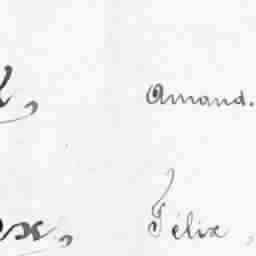 Amand.
Félix,